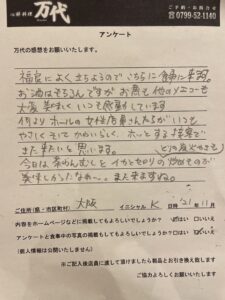 万代
ご予約・お問合せ
☎ 0799-52-1140
アンケート
万代の感想をお願いいたします。
福良によく立ちよるのでこちらに 来店。
お酒はもちろんですが お魚も他のメニューも
大変美味しく いつも感動しています
何より ホールの女性店員さんがいつも
やさしくて かわいらしく、ホッとする接客で
また来たいと思います。
今日は茶わんむしと イカとセロリの炒めものが
美味しかったなぁ〜。また来ますね。
ご住所(県・市区町村) 大阪 イニシャル K 日時 '21年11月
内容をホームページなどに掲載してもよろしいでしょうか? はい いいえ
アンケートと食事中の写真の掲載してもよろしいでしょうか? はい いいえ
(個人情報は公開いたしません)
※ご記入後店員に渡して頂けましたら粗品とお引き換え致します
ご協力よろしくお願いいたします